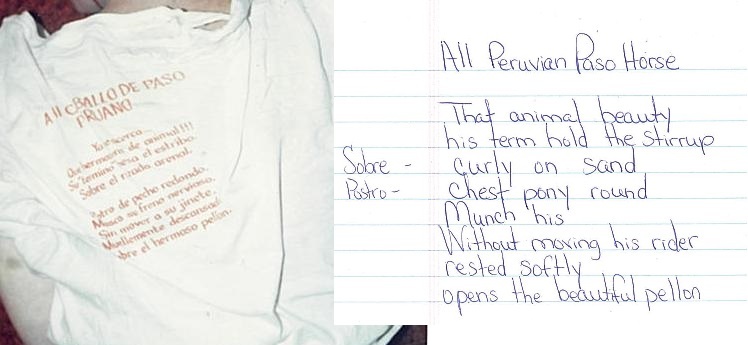 All CBALLO DE PASO
PRUANO
Ya se acerca...
Que hermosura de animal!!!
Su "termino" besa el estribo.
Sobre el rizado arenal.
otro de pecho redondo.
Masca su freno nervioso.
Sin mover a su jinete.
Muellemente descansad
bre el hermoso pellon.
All Peruvian Paso Horse
That animal beauty
his term hold the stirrup
Sobre - Curly on sand
Postro - Chest pony round
Munch his
Without moving his rider
rested softly
opens the beautiful pellon